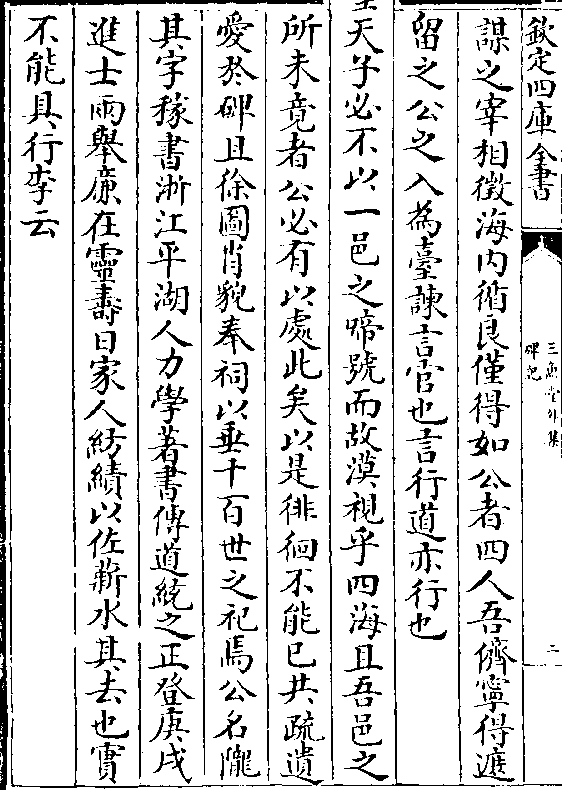 欽定四庫全書
三魚堂外集
碑記
二
謀之宰相徵海内循良僅得如公者四人吾儕寧得遮
留之公之入為臺諫言官也言行道亦行也
聖天子必不以一邑之啼號而故漠視乎四海且吾邑之
所未竟者公必有以處此矣以是徘徊不能已共疏遺
愛於碑且徐圖肖貌奉祠以垂千百世之祀焉公名隴
其字稼書浙江平湖人力學著書傳道統之正登庚戌
進士兩舉廉在靈壽日家人紡績以佐薪水其去也實
不能具行李云